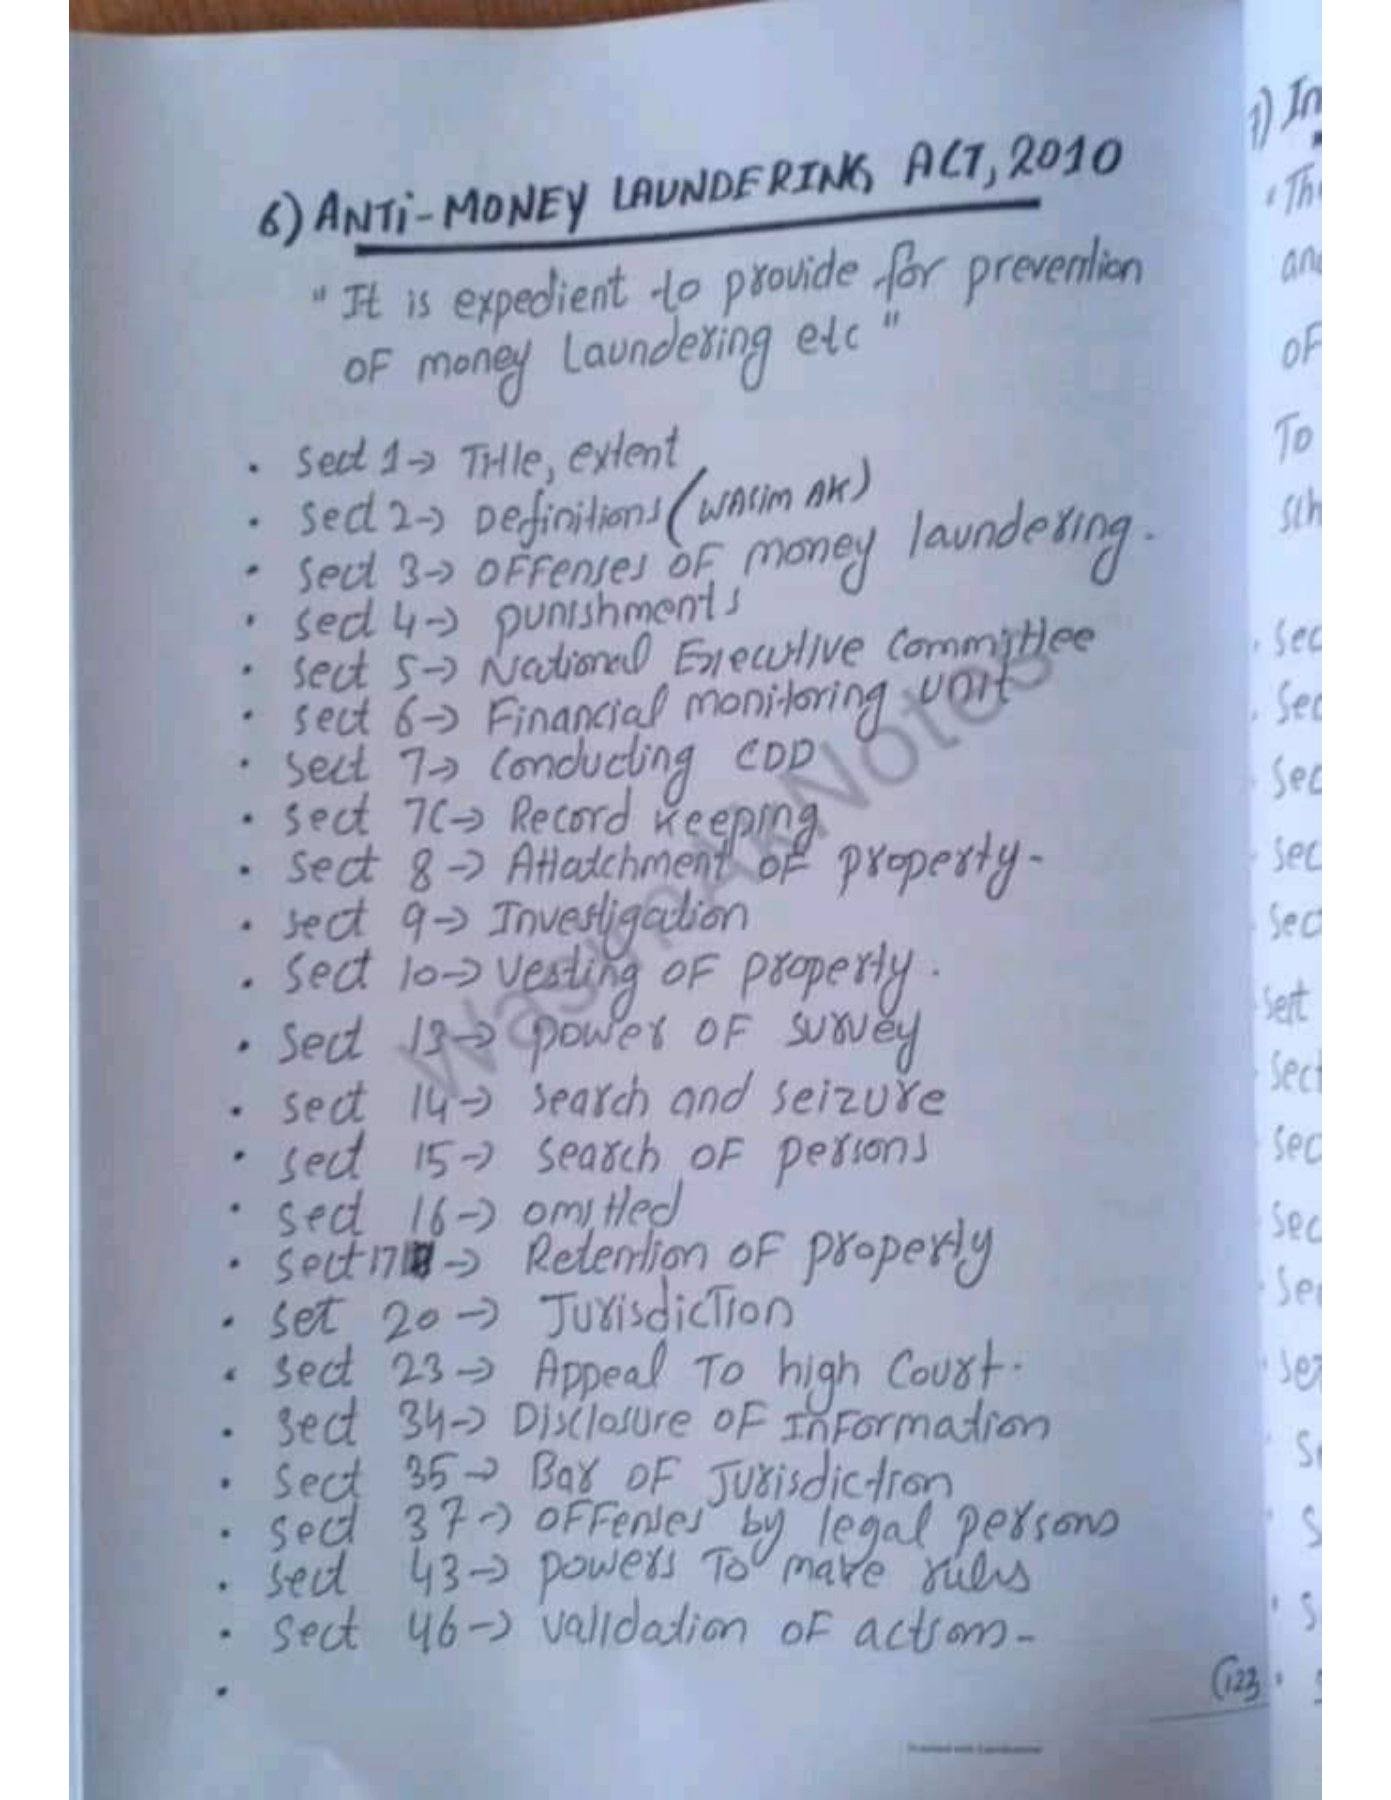 6) ANTi-MONEY LAUNDERING ACT, 2010
"It is expedient to provide for prevention
OF money Laundering etc"
• Sect 1→ Title, extent
• Sect 2→ Definitions (WASIM AK)
• Sect 3→ OFFenses OF money laundering.
• Sect 4→ punishments
• Sect 5→ National Executive Committee
• Sect 6→ Financial monitoring unit
• Sect 7→ Conducting CDD
• Sect 7C→ Record Keeping
• Sect 8→ Attatchment OF property-
• Sect 9→ Investigation
• Sect 10→ Vesting OF property.
• Sect 13→ power OF survey
• Sect 14→ Search and seizure
• Sect 15→ Search OF persons
• Sect 16→ omitted
• Sect 17→ Retention OF property
• Set 20→ Jurisdiction
• Sect 23→ Appeal To high Court.
• Sect 34→ Disclosure OF InFormation
• Sect 35→ Bar OF Jurisdiction
• Sect 37→ OFFenses by legal persons
• Sect 43→ powers To make rules
• Sect 46→ validation OF actions-
•
(123
WasimAKNotes
1) In
• Th
and
OF
To
Sch
• Sec
• Sec
Sec
• Sec
Sect
Sect
Sect
Sec
Sec
• Se
S
S
• S